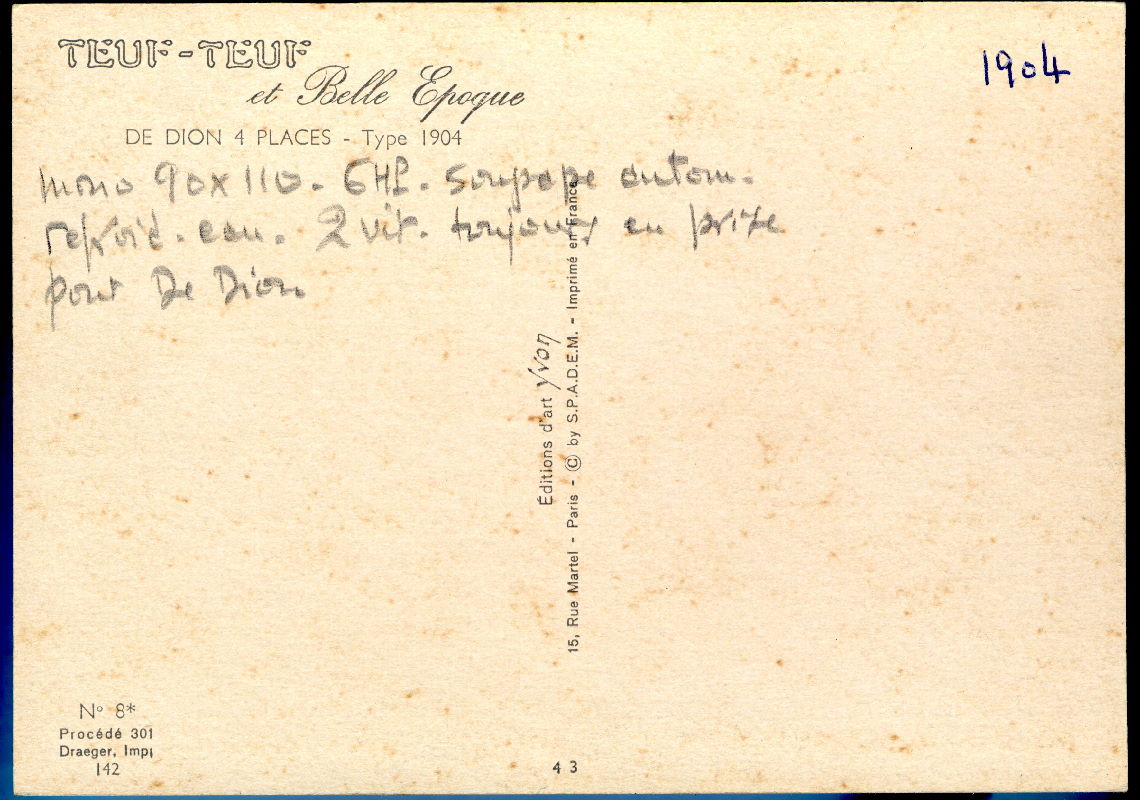 TEUF-TEUF
et Belle Epoque
1904
DE DION 4 PLACES - Type 1904
mono 90x110. 6HP. soupape autom.
refroid. eau. 2 vit. toujours en prise
pont De Dion
Éditions d'art Yvon
15, Rue Martel - Paris - © by S.P.A.D.E.M. - Imprimé en France
N° 8*
Procédé 301
Draeger, Imp;
142
4 3